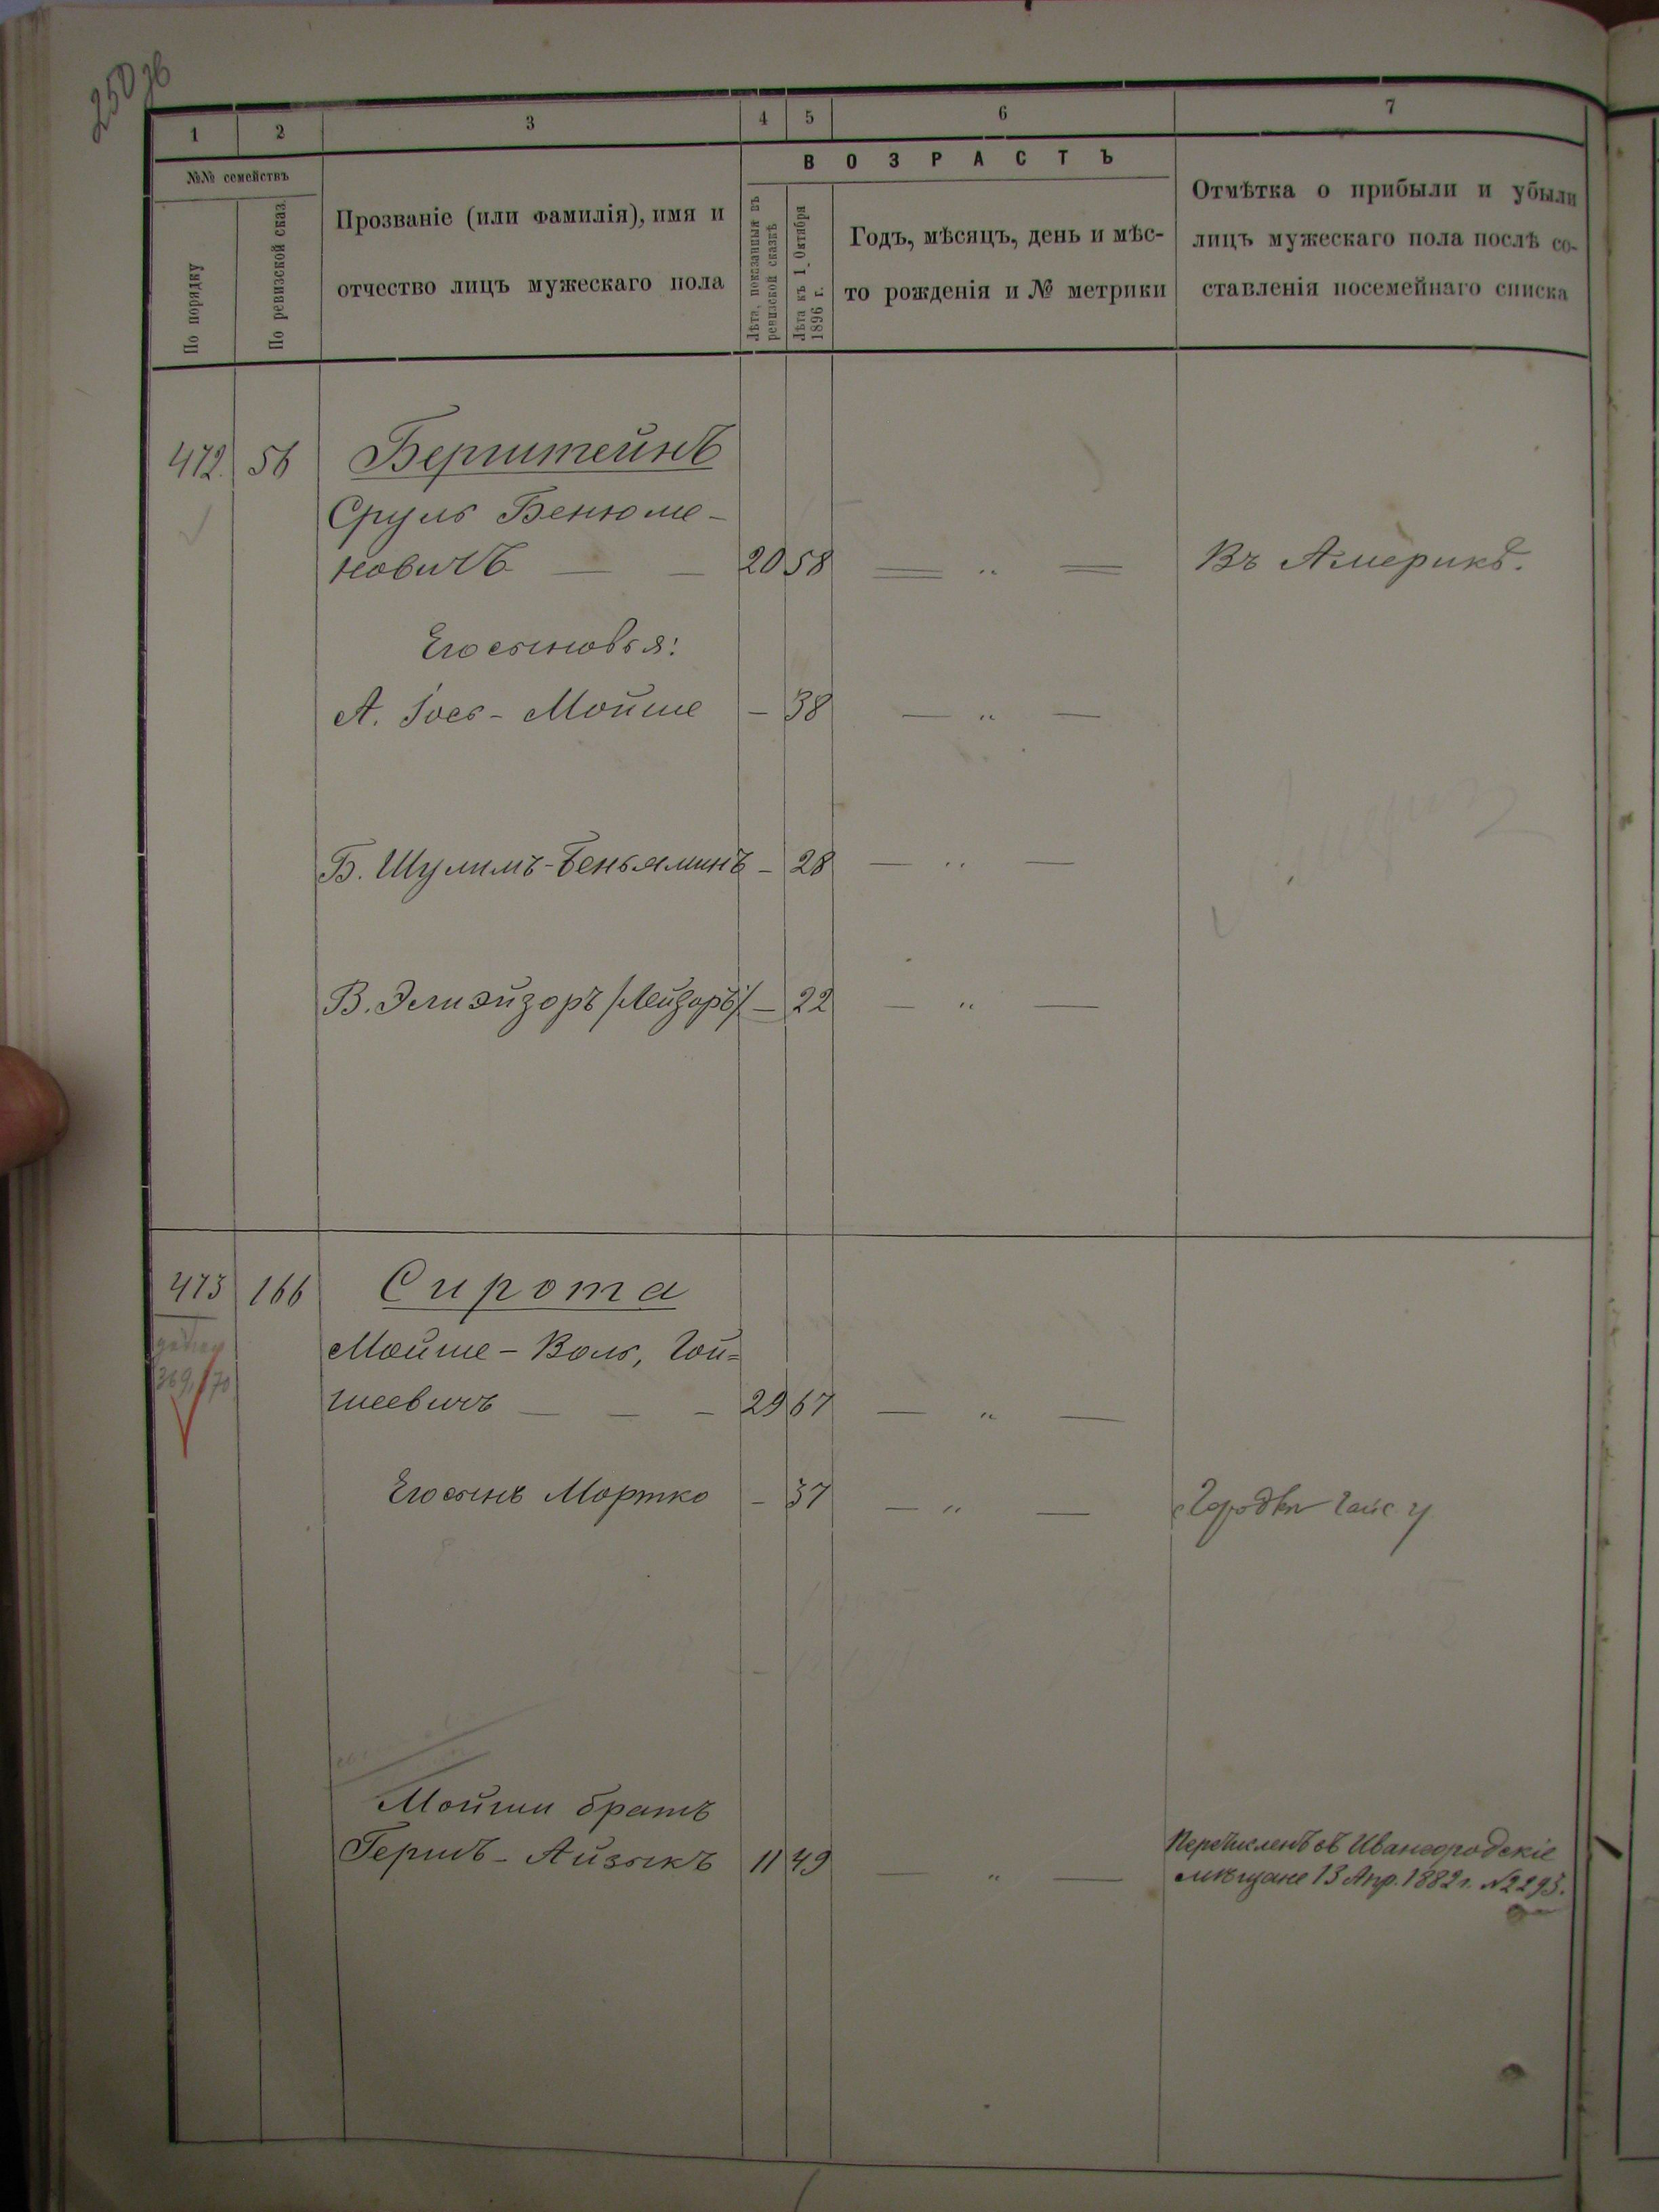 250 зв
1 2 3 4 5 6 7
№№ семействъ
По порядку
По ревизской сказ.
Прозваніе (или фамилія), имя и
отчество лицъ мужескаго пола
ВОЗРАСТЪ
Лѣта, показанныя въ
ревизской сказкѣ
Лѣта къ 1 Октября
1896 г.
Годъ, мѣсяцъ, день и мѣс-
то рожденія и № метрики
Отмѣтка о прибыли и убыли
лицъ мужескаго пола послѣ со-
ставленія посемейнаго списка
472. 56 Берштейнъ
Сруль Бенюме-
новичъ — — 20 58 — „ — Въ Америкѣ.
Его сыновья:
А. Іось-Мойше — 38 — „ —
Б. Шулимъ-Беньяминъ — 28 — „ —
В. Элиэйзоръ /Лейзоръ/ — 22 — „ —
473 166 Сирота
Мойше-Воль, Гой=
шеевичъ — — — 29 67 — „ —
369, 70
Его сынъ Мортко — 37 — „ —
Мойши братъ
Гершъ-Айзыкъ 11 49 — „ —
Перечисленъ въ Ивангородскіе
мѣщане 13 Апр. 1882 г. №2293.